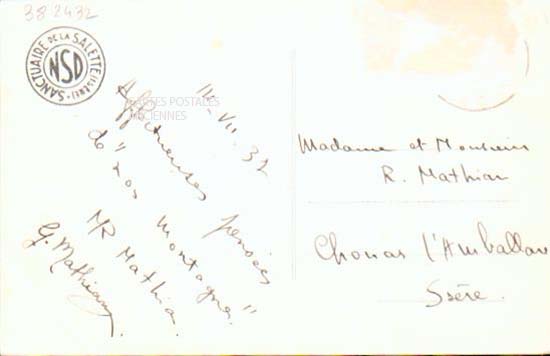 382432
SANCTUAIRE DE LA SALETTE (ISÈRE)
NSD
CARTES POSTALES
ANCIENNES
VII. 37
Affectueuses pensées
de "nos montagnes"
MR Mathian.
G. Mathian.
Madame et Monsieur
R. Mathian
Chonas l'Amballan
Isère.